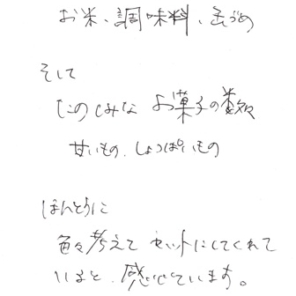 お米、調味料、缶づめ
そして
たのしみな お菓子の数々
甘いもの、しょっぱいもの
ほんとうに
色々考えて セットにしてくれて
いると、感じています。